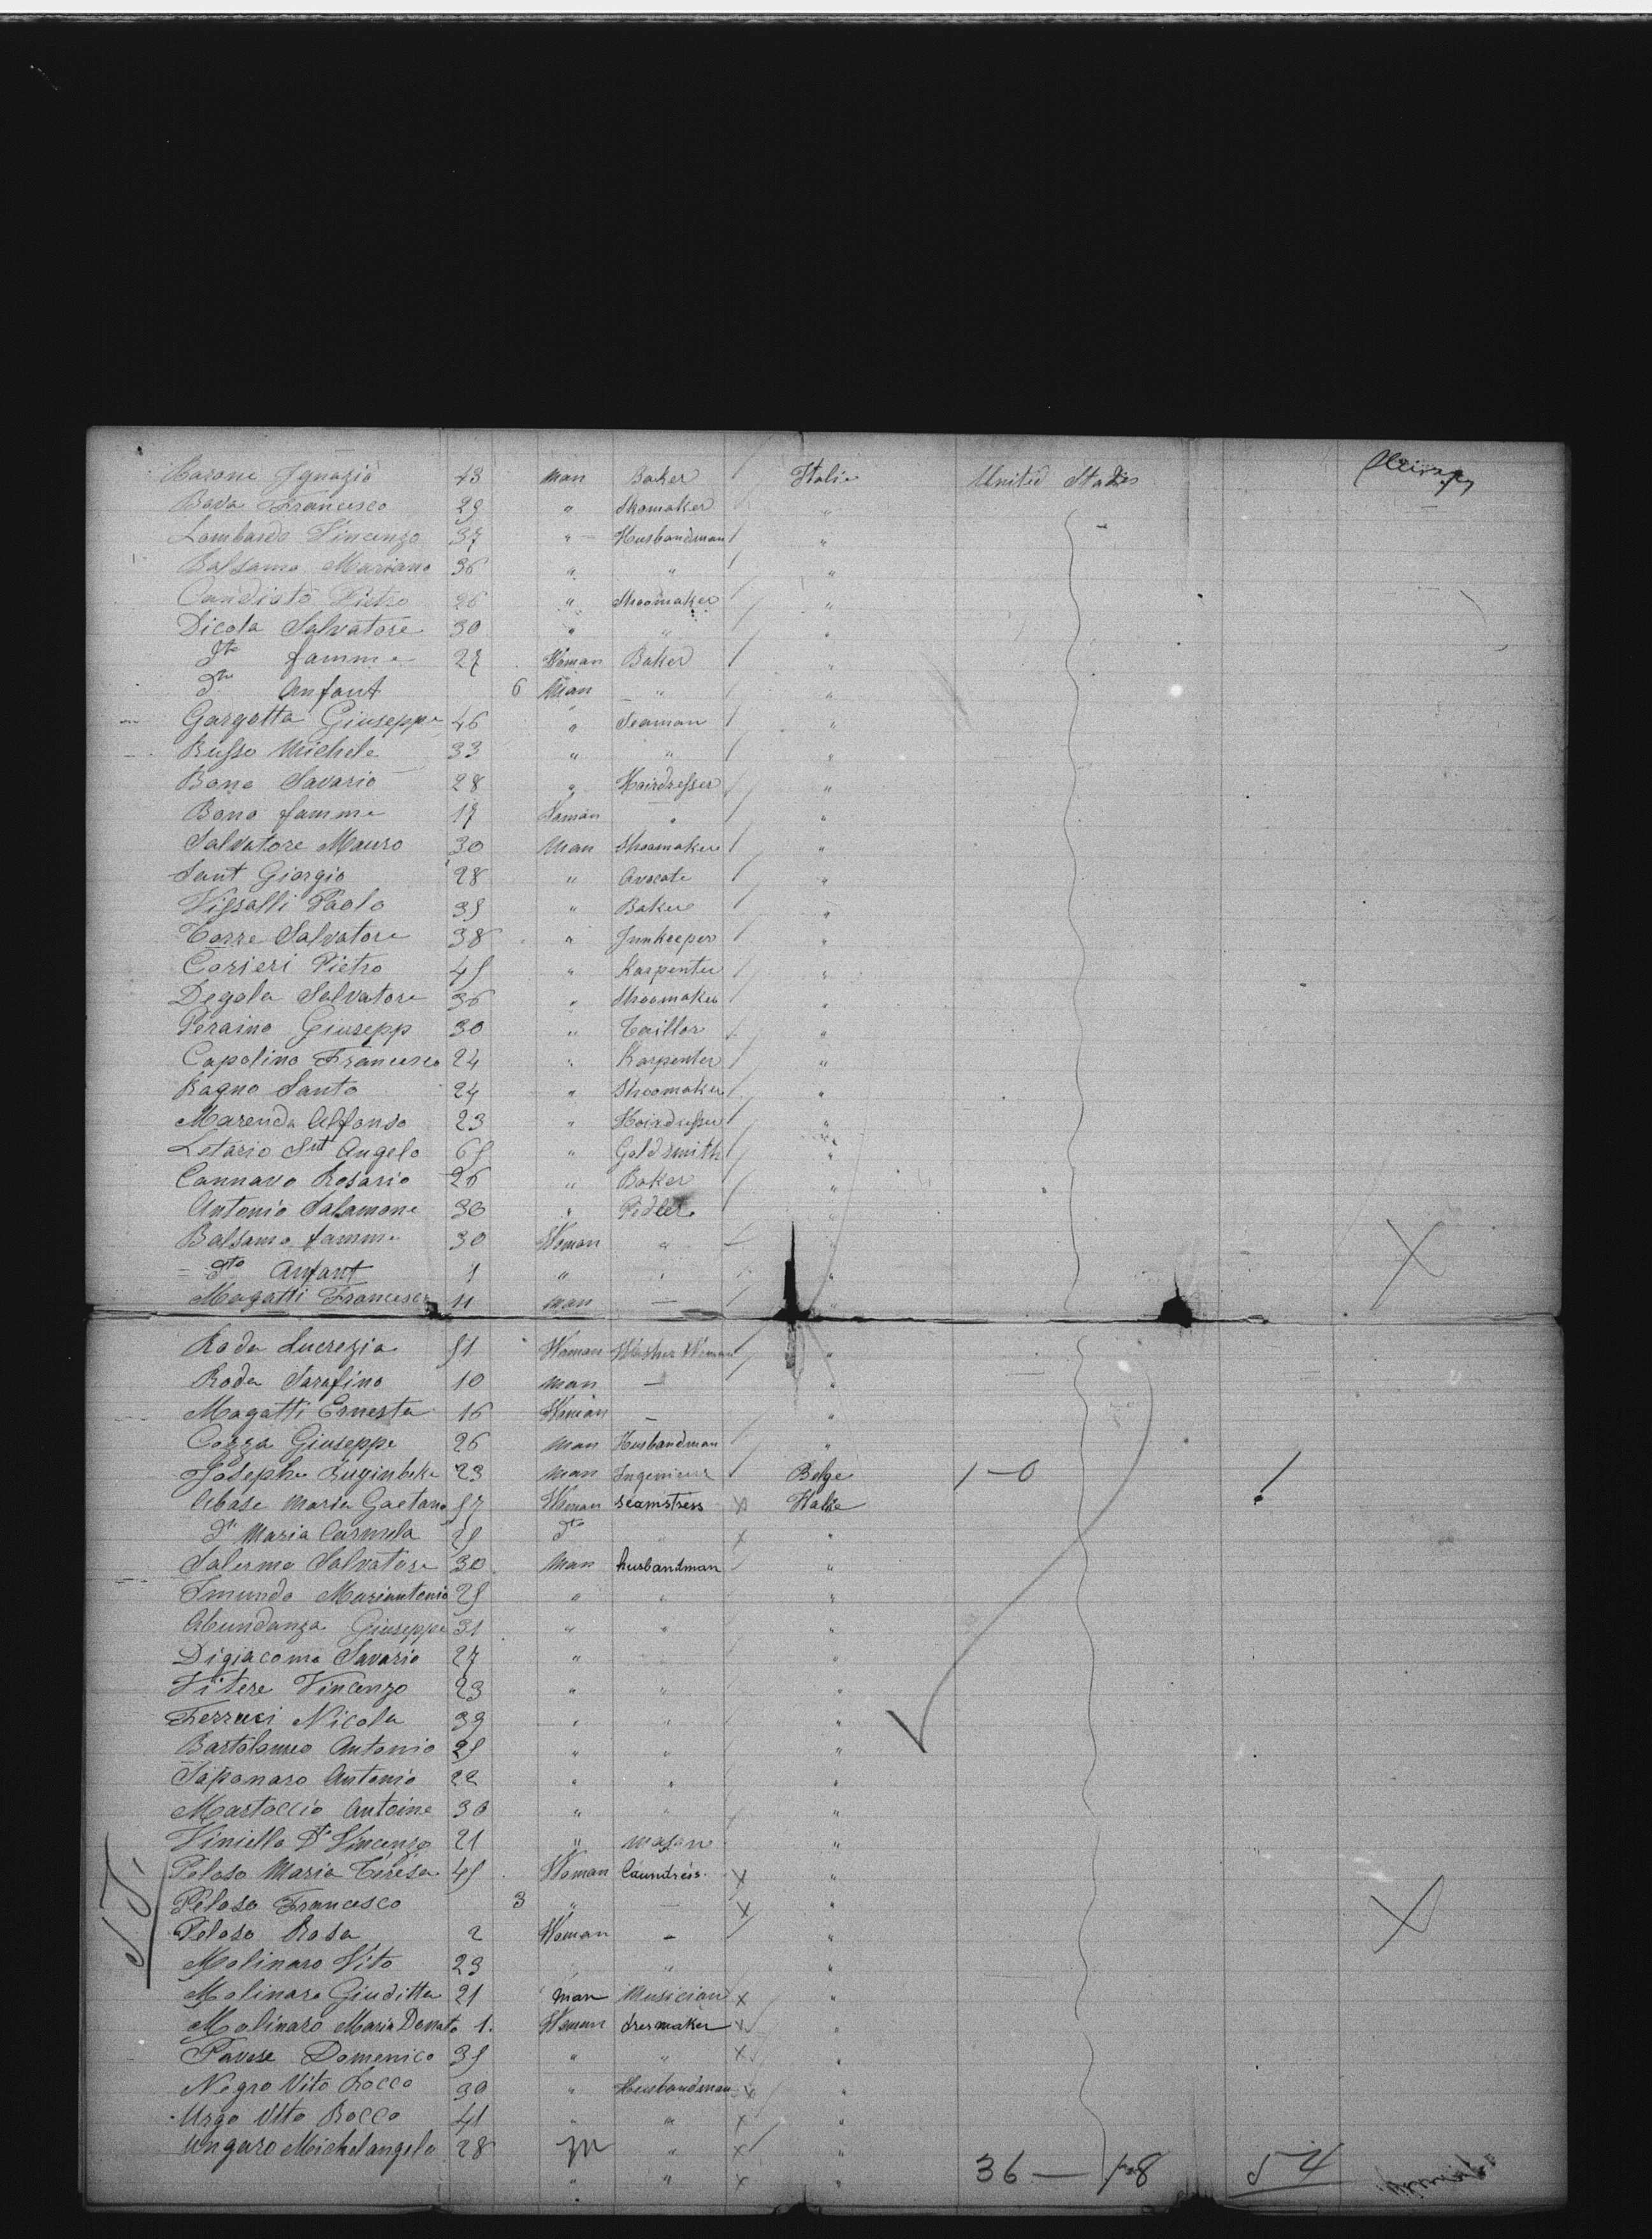 Barone Ignazio 43 Man Baker Italie United States
Bava Francesco 29 " Shomaker "
Lombardo Vincenzo 37 " Husbandman "
Balsamo Mariano 36 " " "
Candiato Pietro 26 " Shoomaker "
Dicola Salvatore 30 " " "
Dto famme 27 Woman Baker "
Dto Anfant 6 Man " "
Gargotta Giuseppe 46 " Seaman "
Russo Michele 33 " " "
Bono Savario 28 " Hairdresser "
Bono famme 17 Woman " "
Salvatore Mauro 30 Man Shoomaker "
Sant Giorgio 28 " Avocate "
Vissalli Paolo 35 " Baker "
Torre Salvatore 38 " Innkeeper "
Corieri Pietro 45 " Karpenter "
Degola Salvatore 36 " Shoomaker "
Peraino Giusepp 30 " Taillor "
Capolino Francesco 24 " Karpenter "
Ragno Santo 24 " Shoomaker "
Marenda Alfonso 23 " Hairdresser "
Letario Snt Angelo 65 " Goldsmith "
Cannavo Rosario 26 " Baker "
Antonio Salamone 30 " Pidler "
Balsamo famme 30 Woman " "
Dto Anfant 1 " " "
Magatti Francesco 11 Man — "
Roda Lucrezia 51 Woman Washer Woman "
Roda Sarafino 10 Man — "
Magatti Ernesta 16 Woman — "
Cozza Giuseppe 26 Man Husbandman "
Josephe 23 Man Ingenieur Belge 1-0 1
Abase Maria Gaetana 57 Woman Seamstress X Italie
Dto Maria Carmela 25 Dto X "
Salermo Salvatore 30 Man husbandman "
Imundo Mariantonio 25 " " "
Abundanza Giuseppe 31 " " "
Digiacomo Savario 27 " "
Vitere Vincenzo 23 " " "
Ferruci Nicola 39 " " "
Bartolomeo Antonio 25 " " "
Saponaro Antonio 22 " " "
Martoccio Antoine 30 " " "
Viniello Dt Vincenzo 21 " Masone "
Peloso Maria Teresa 45 Woman Laundress X "
Peloso Francesco 3 " — X "
Peloso Rosa 2 Woman — "
Molinaro Vito 23 " "
Molinaro Giuditta 21 man Musician X "
Molinaro Maria Donata 1. Woman dresmaker X "
Pavese Domenico 35 " " X "
Negro Vito Rocco 30 " Husbandman X "
Urgo Vito Rocco 41 " " X "
Ungaro Michelangelo 28 M " X "
" " X " 36 — 18 54